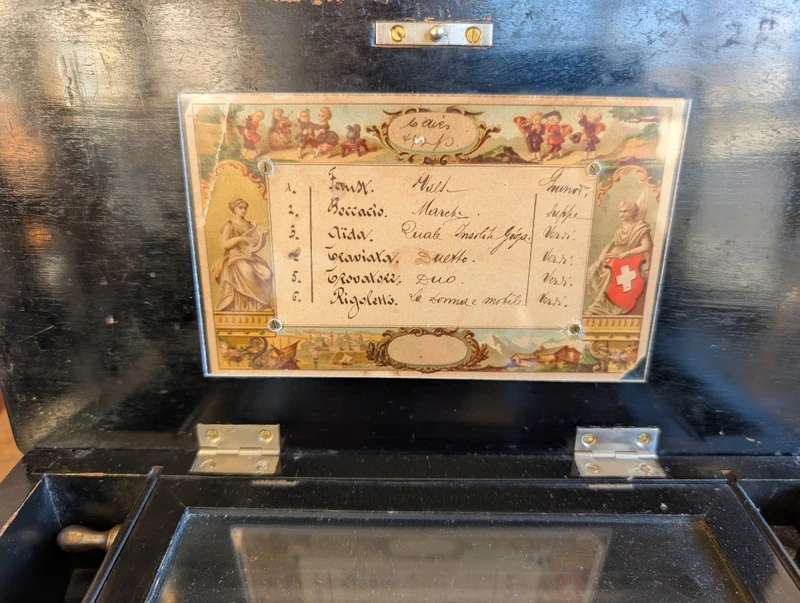 6 airs
1. Faust. Walt Gounod.
2. Boccacio. March. Suppe
3. Aïda. Quale Insolita Gioja. Verdi.
Traviata. Duetto. Verdi.
5. Trovatore. Duo. Verdi.
6. Rigoletto. La donna e mobile Verdi.